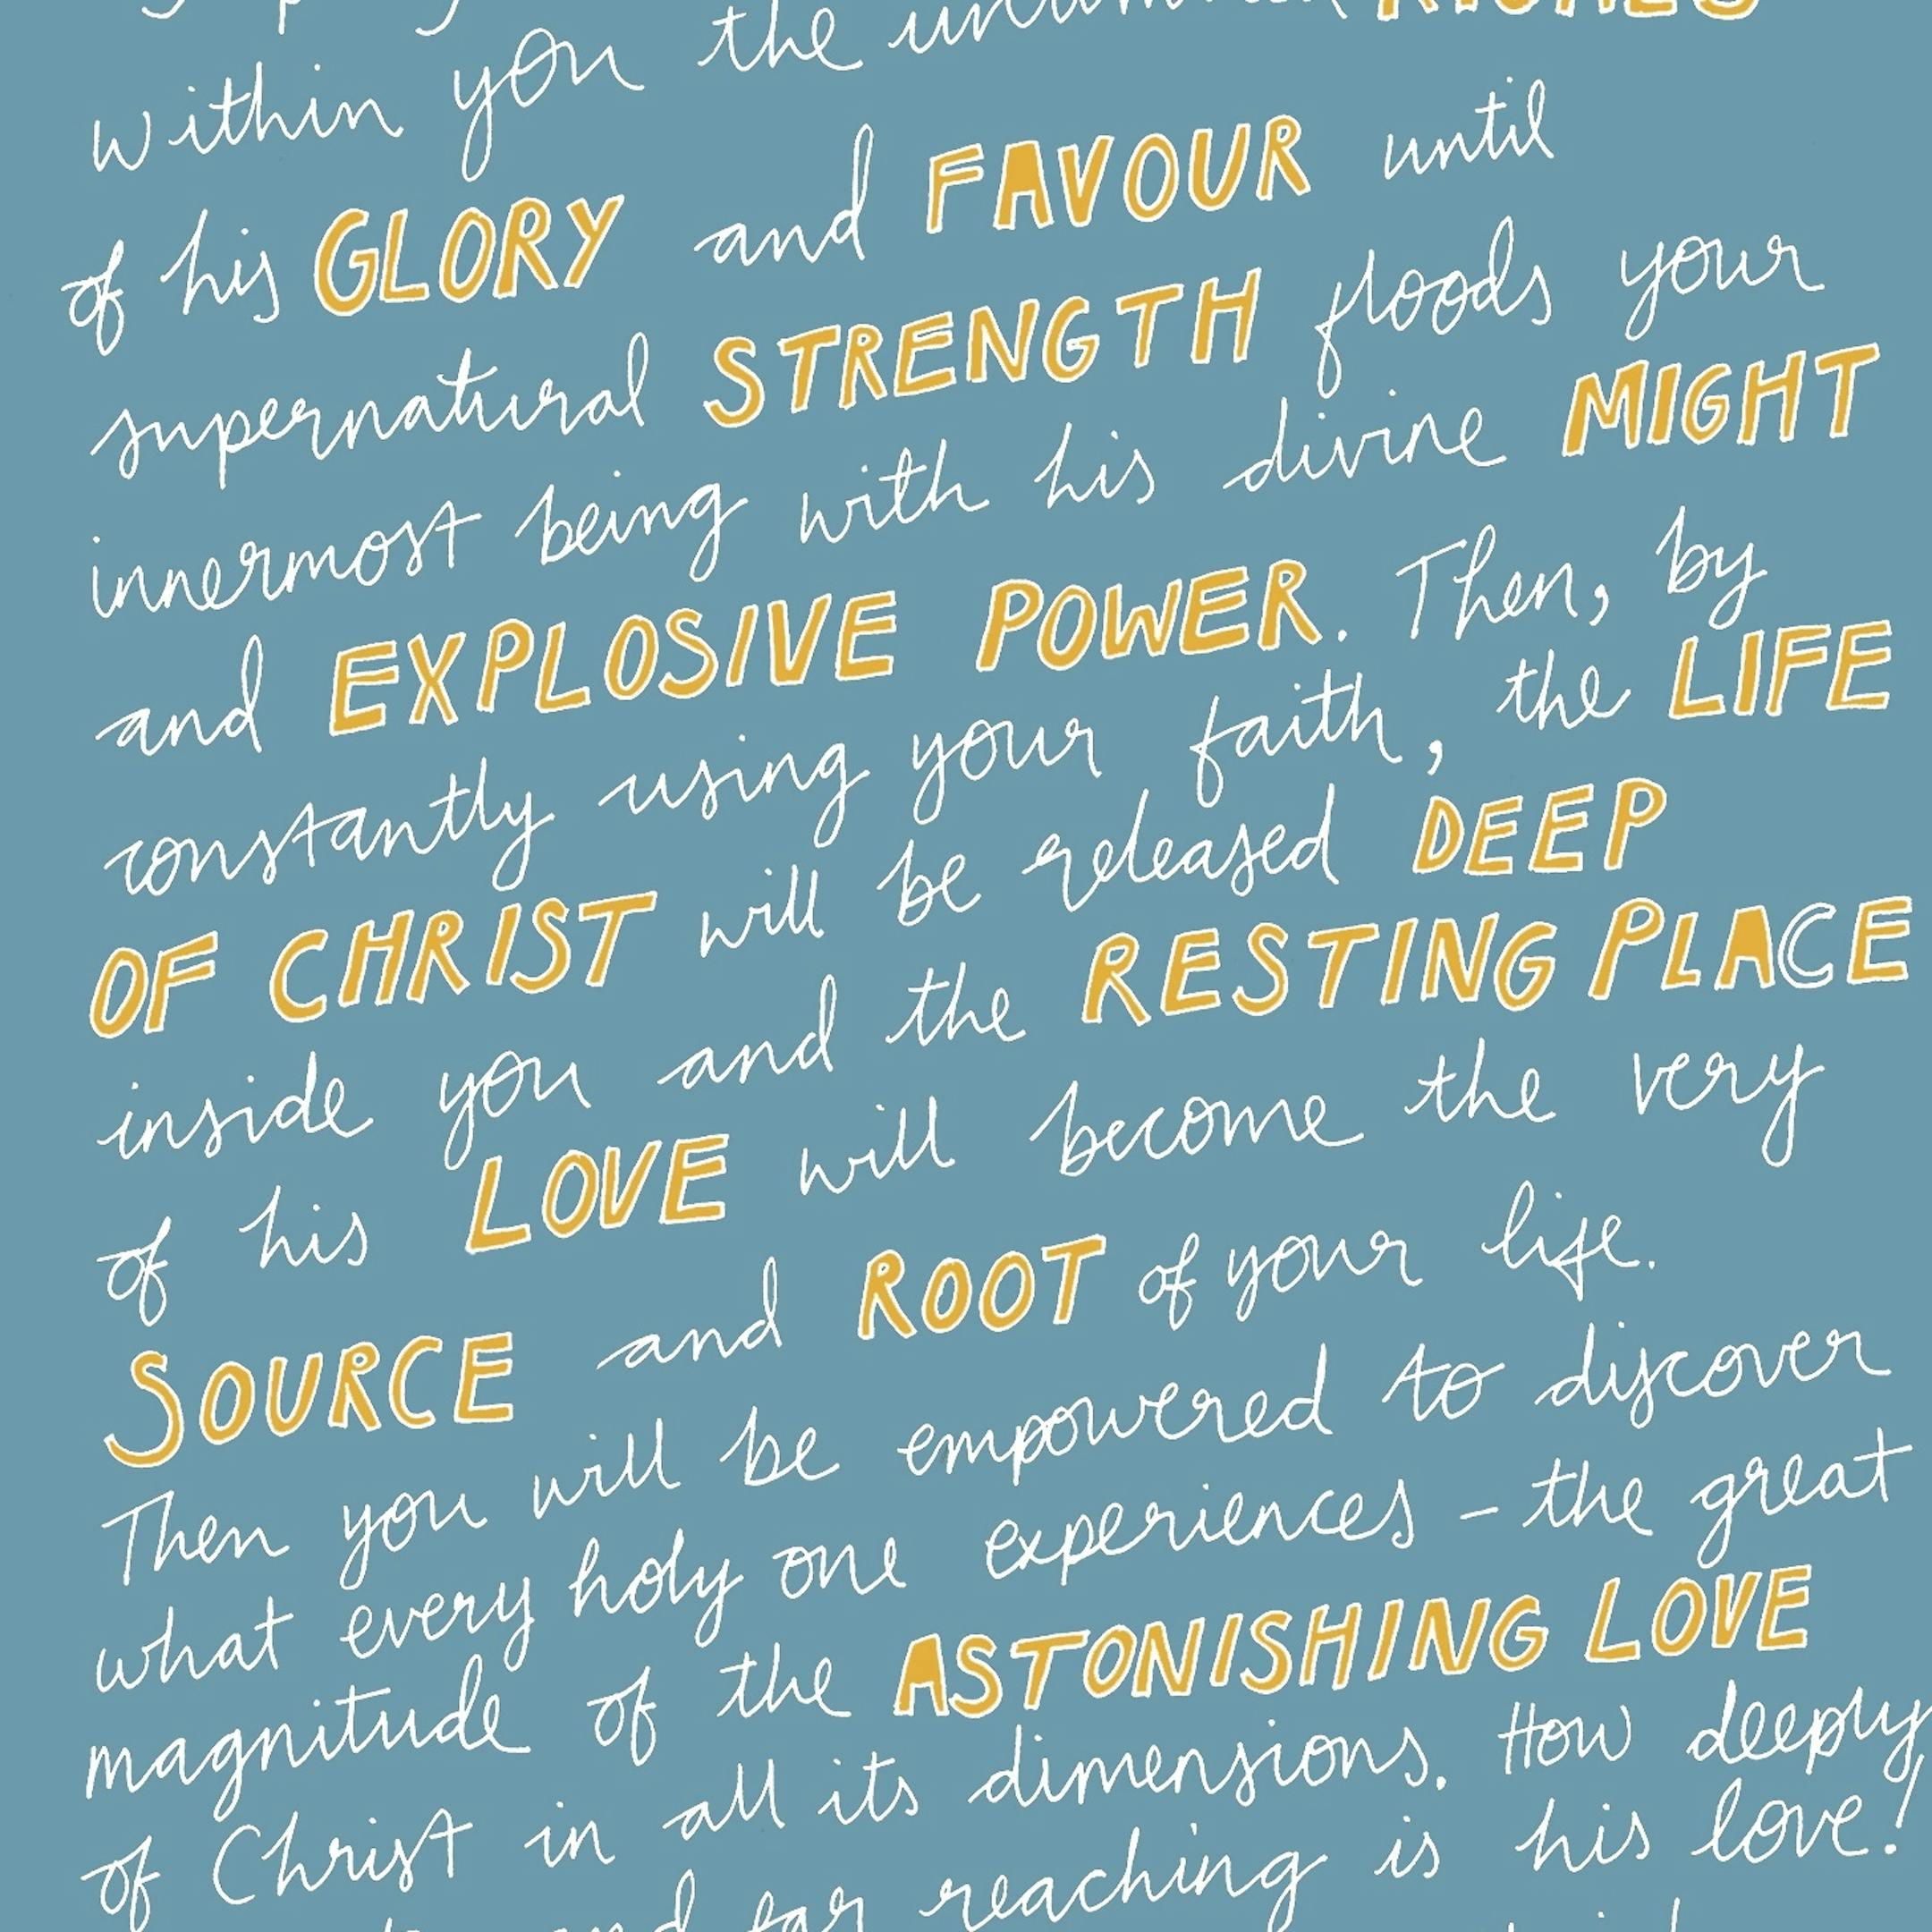 within you the unlimited RICHES
of his GLORY and FAVOUR until
supernatural STRENGTH floods your
innermost being with his divine MIGHT
and EXPLOSIVE POWER. Then, by
constantly using your faith, the LIFE
OF CHRIST will be released DEEP
inside you and the RESTING PLACE
of his LOVE will become the very
SOURCE and ROOT of your life.
Then you will be empowered to discover
what every holy one experiences - the great
magnitude of the ASTONISHING LOVE
of Christ in all its dimensions. How deeply
and far reaching is his love!